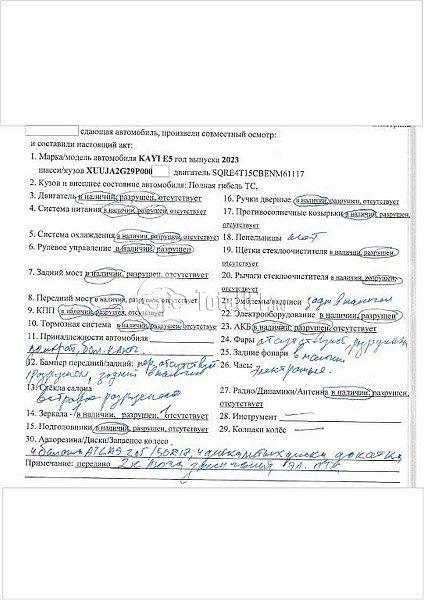 сдающая автомобиль, произвели совместный осмотр:
и составили настоящий акт:
1. Марка/модель автомобиля KAYI E5 год выпуска 2023
шасси/кузов XUUJA2G29P000 двигатель SQRE4T15CBENM61117
2. Кузов и внешнее состояние автомобиля: Полная гибель ТС,
3. Двигатель в наличии, разрушен, отсутствует
4. Система питания в наличии, разрушен, отсутствует
5. Система охлаждения в наличии, разрушен, отсутствует
6. Рулевое управление в наличии, разрушен
7. Задний мост в наличии, разрушен, отсутствует
8. Передний мост в наличии, разрушен, отсутствует
9. КПП в наличии, разрушен, отсутствует
10. Тормозная система в наличии, разрушен, отсутствует
11. Принадлежности автомобиля
домкрат,
12. Бампер передний/задний: пер. отсутствует
разрушен, задний в наличии
13. Стёкла салона
ветровое разрушено
14. Зеркала - в наличии, разрушен, отсутствует
15. Подголовники в наличии, разрушен, отсутствует
16. Ручки дверные в наличии, разрушен, отсутствует
17. Противосолнечные козырьки в наличии,
разрушен, отсутствует
18. Пепельницы нет
19. Щетки стеклоочистителя в наличии, разрушен,
отсутствует
20. Рычаги стеклоочистителя в наличии, разрушен,
отсутствует
21. Эмблемы/надписи задн в наличии
22. Электрооборудование в наличии, разрушен
23. АКБ в наличии, разрушен, отсутствует
24. Фары отсутствует, разрушена
25. Задние фонари в наличии
26. Часы электронные.
27. Радио/Динамики/Антенна в наличии, разрушен,
отсутствует
28. Инструмент -
29. Колпаки колёс -
30. Авторезина/Диски/Запасное колесо
4 баллона ATLAS 205/50R17, 4 диска докатка
Примечание: передано 2 к